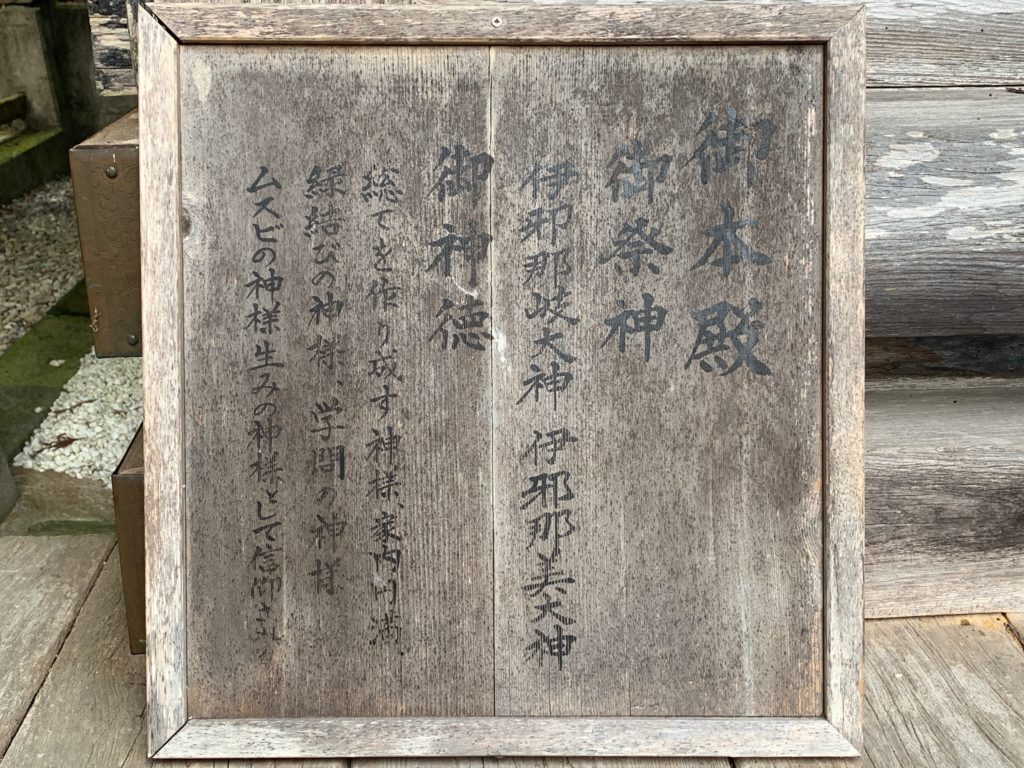 御本殿
御祭神
伊邪那岐大神 伊邪那美大神
御神徳
総てを作り成す神様、家内円満、
縁結びの神様、学問の神様
ムスビの神様生みの神様として信仰され